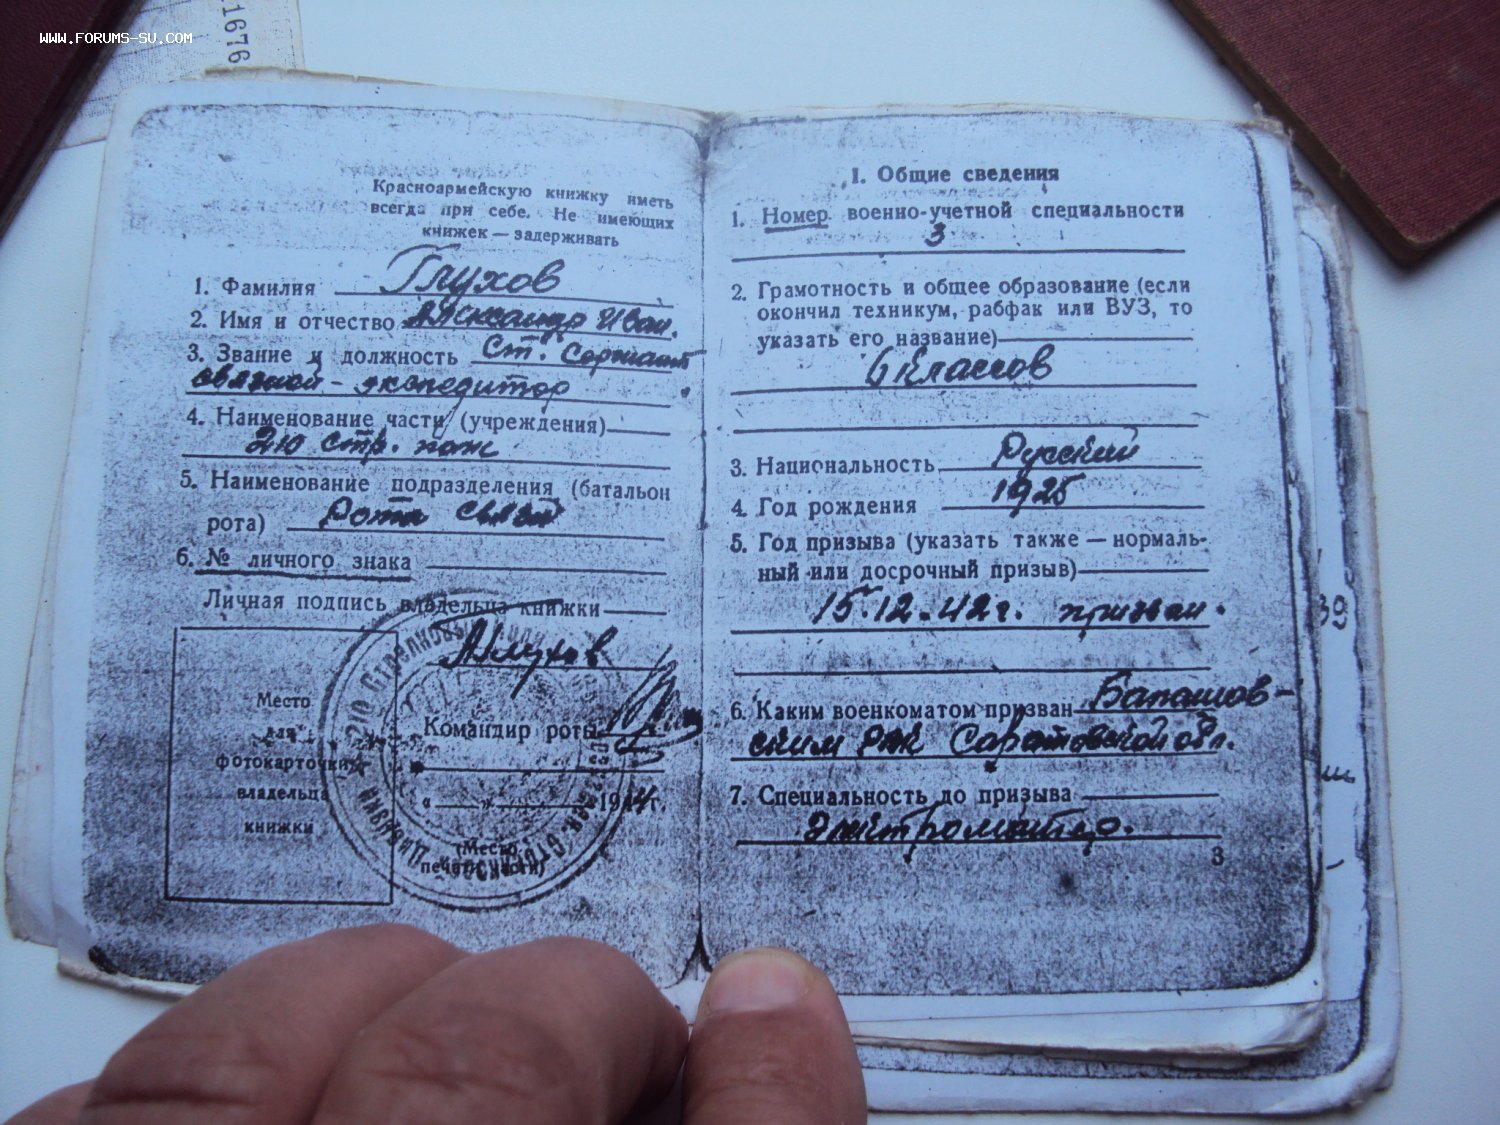 WWW.FORUMS-SU.COM
1676
Красноармейскую книжку иметь
всегда при себе. Не имеющих
книжек — задерживать
1. Фамилия Глухов
2. Имя и отчество Александр Иван.
3. Звание и должность Ст. Сержант
связной - экспедитор
4. Наименование части (учреждения)
210 стр. полк
5. Наименование подразделения (батальон
рота) Рота связи
6. № личного знака
Личная подпись владельца книжки
АГлухов
Командир роты
« » 1944г.
(Место
печати части)
Место
для
фотокарточки
владельца
книжки
210 СТРЕЛКОВЫЙ
1. Общие сведения
1. Номер военно-учетной специальности
3
2. Грамотность и общее образование (если
окончил техникум, рабфак или ВУЗ, то
указать его название)
6 классов
3. Национальность Русский
4. Год рождения 1925
5. Год призыва (указать также — нормаль-
ный или досрочный призыв)
15.12.42г. призван.
6. Каким военкоматом призван Балашов-
ским РВК Саратовской обл.
7. Специальность до призыва
электромонтер.
3
39